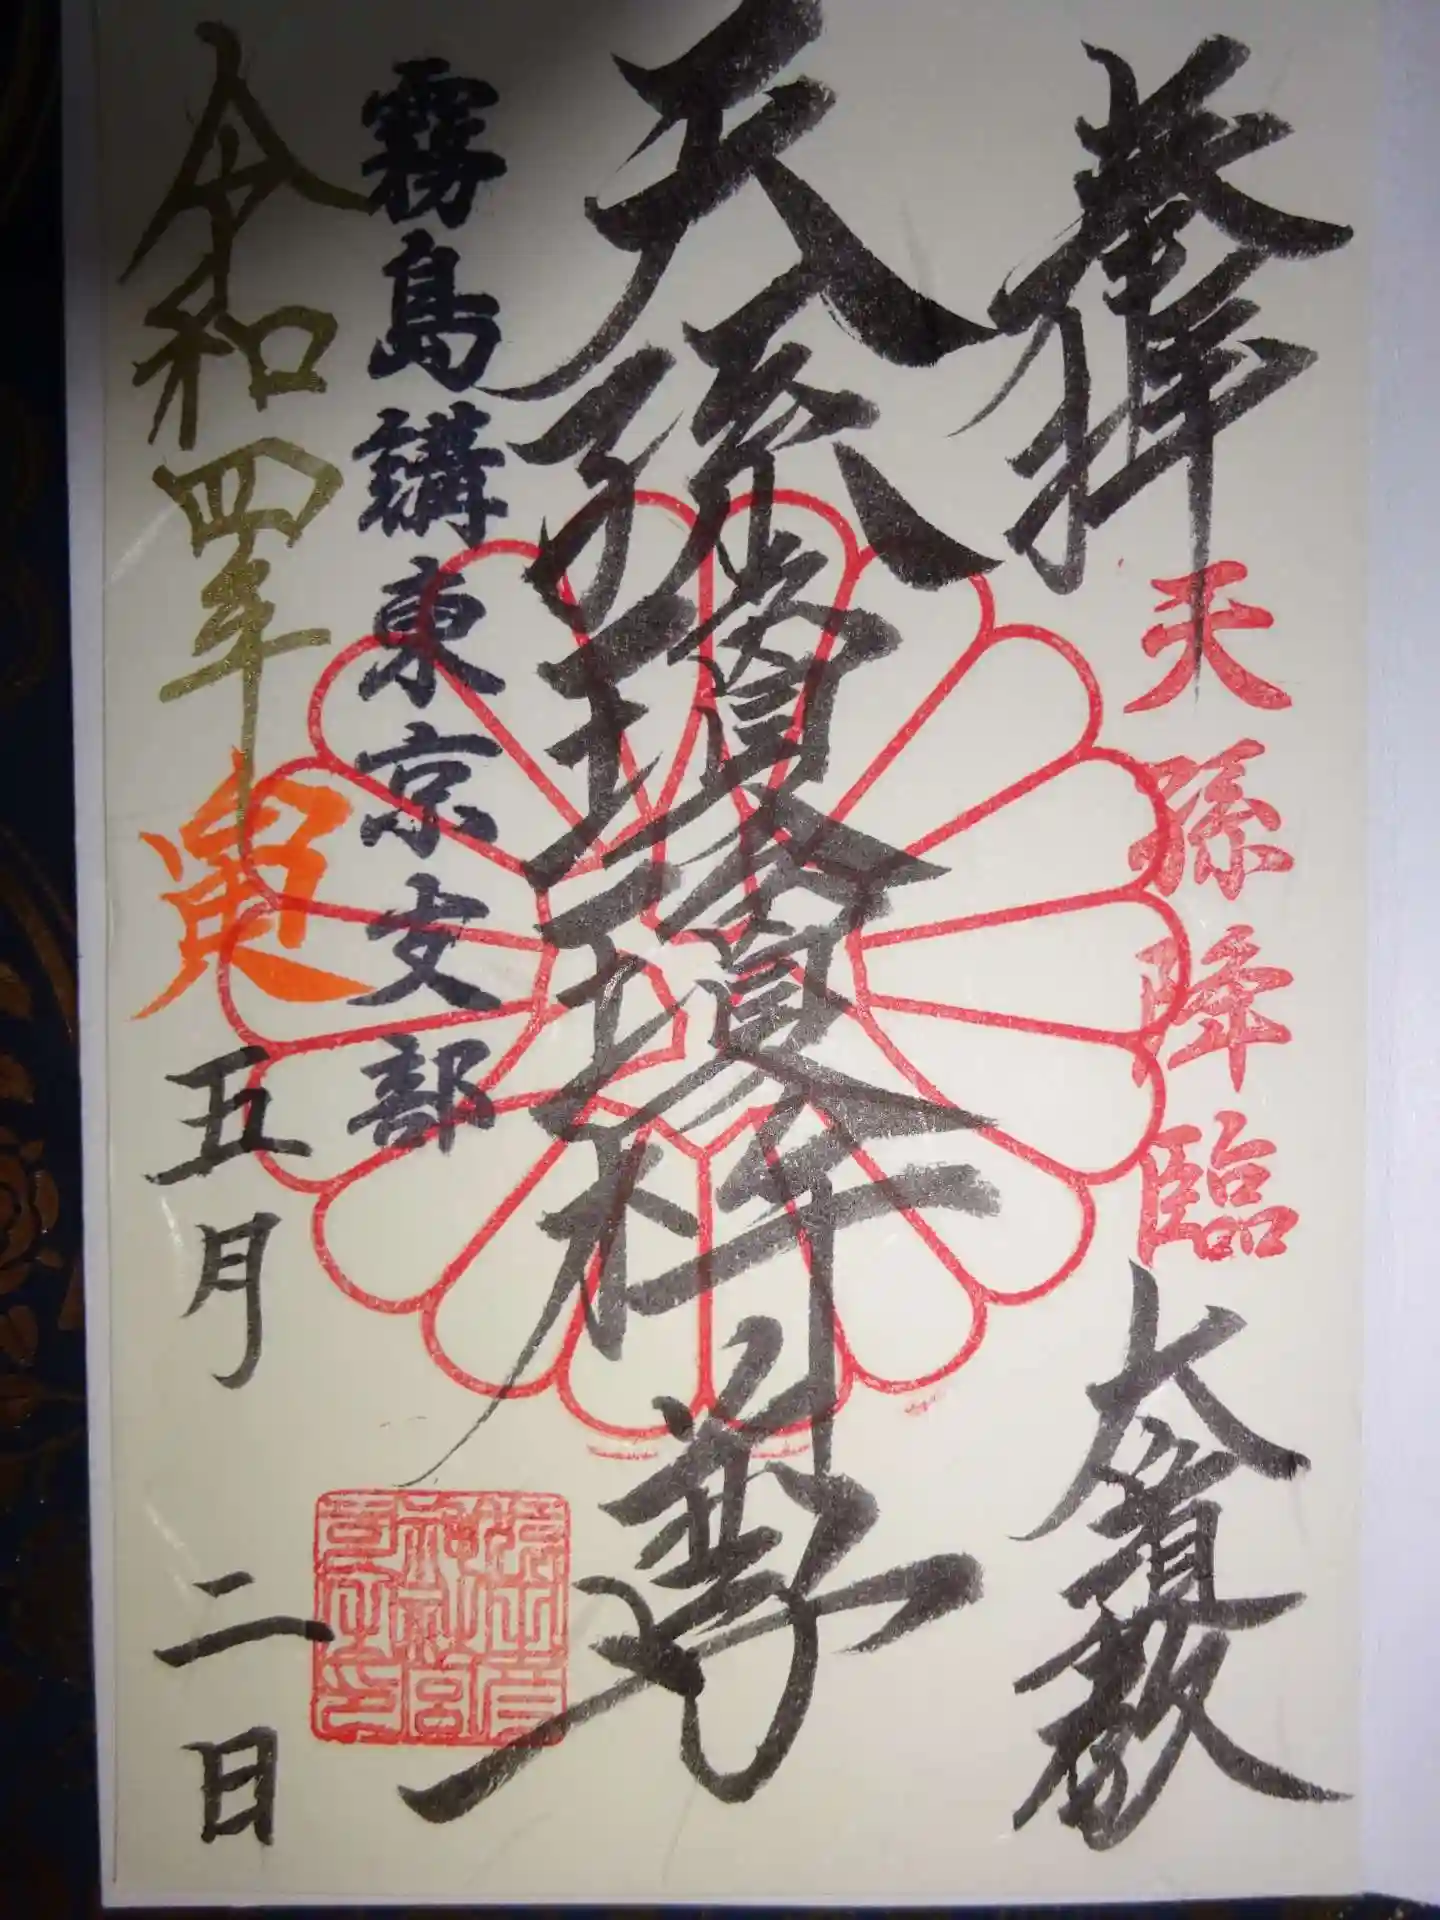 奉拝
天孫降臨
大教
天孫瓊瓊杵尊
霧島講東京支部
令和四年寅五月二日